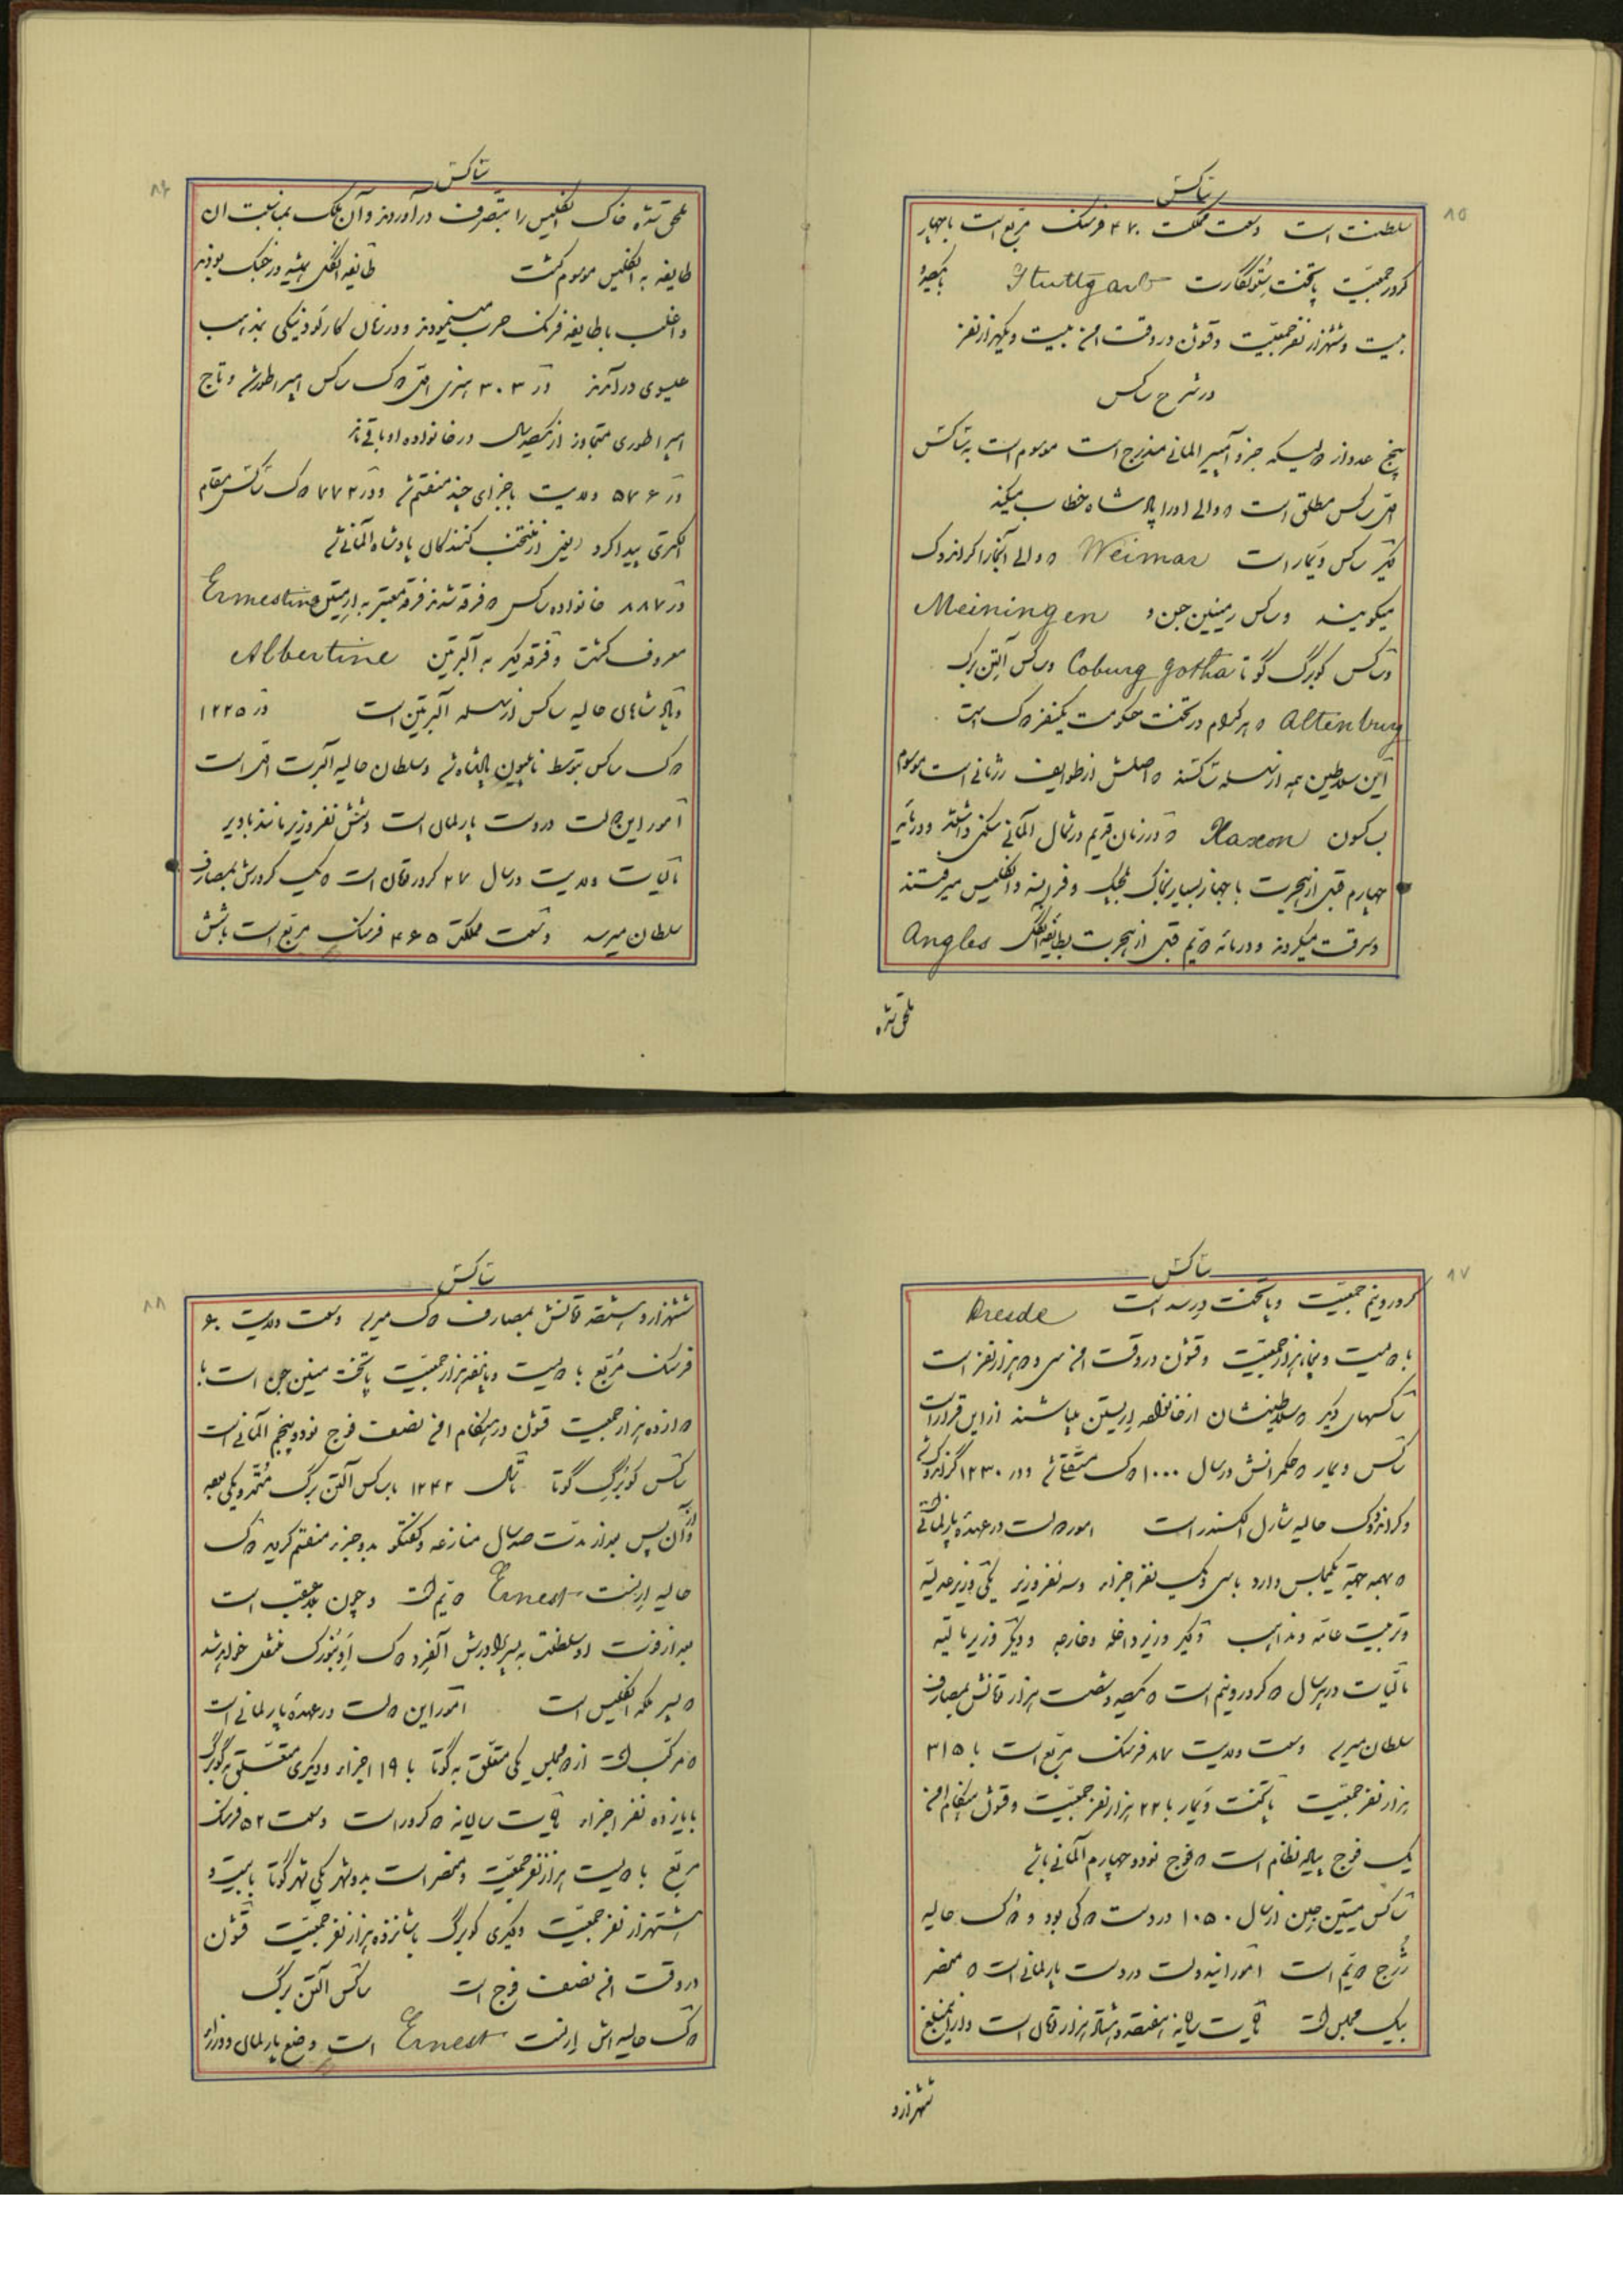 ۸۵
ساکس
سلطنت است وسعت مملکت ۴۷۰ فرسنگ مربع است با چهار
کرور جمعیت پایتخت ستوتگارت Stuttgart با یکصد و
بیست و ششهزار نفر جمعیت و قشون در وقت امن بیست و یکهزار نفر
در شرح ساکس
پنج عدد از دولیکه جزو آمپیر المانی مندرج است موسوم است به ساکس
اول ساکس مطلق است و والی او را پادشاه خطاب میکنند
دیگر ساکس ویمار است Weimar و والی آنجا را گراندوک
میگویند و ساکس مینین جن و Meiningen
و ساکس کوبرگ گوتا Coburg Gotha و ساکس آلتن برگ
Altenburg و هر کدام در تحت حکومت یکنفر دوک است
این سلاطین همه از سلسله ساکسند و اصلش از طوایف ژرمانی است موسوم
بساکسون Saxon و در زمان قدیم در شمال آلمانی سکنی داشتند و در مائه
چهارم قبل از هجرت با جهاز بسیار بخاک بلجیک و فرانسه و انگلیس میرفتند
و سرقت میکردند و در مائه دویم قبل از هجرت بطایفه انگل Angles
ملحق شده
۸۶
ساکس
ملحق شده خاک انگلیس را بتصرف در آوردند و آن ملک بمناسبت ان
طایفه به انگلیس موسوم گشت طایفه انگل همیشه در جنگ بودند
و اغلب با طایفه فرنک حرب مینمودند و در زمان کارلوژیکی بمذهب
عیسوی در آمدند در ۳۰۳ هنری اول دوک ساکس امپراطور شد و تاج
امپراطوری متجاوز از یکصد سال در خانواده او باقی ماند
در ۵۷۶ ولایت باجزای چند منقسم شد و در ۷۷۲ دوک ساکس مقام
الکتری پیدا کرد یعنی از منتخب کنندگان پادشاه آلمانی شد
در ۸۸۷ خانواده ساکس دو فرقه شدند فرقه معتبر به ارنستین Ernestine
معروف گشت و فرقه دیگر به آلبرتین Albertine
و پادشاهان حالیه ساکس از سلسله آلبرتین است در ۱۲۲۵
دوک ساکس بتوسط ناپلیون پادشاه شد و سلطان حالیه آلبرت اول است
امور این دولت در دست پارلمان است و شش نفر وزیر مانند باویر
مالیات ولایت در سال ۲۷ کرور قران است و یک کرورش بمصارف
سلطان میرسد وسعت مملکت ۴۶۵ فرسنگ مربع است با شش
۸۷
ساکس
کرور و نیم جمعیت و پایتخت درسد است Dresde
با دویست و پنجاه هزار جمعیت و قشون در وقت امن سی و دو هزار نفر است
ساکسهای دیگر که سلاطینشان از خانواده ارنستین میباشند از این قرار است
ساکس ویمار که حکمرانش در سال ۱۰۰۰ دوک مستقل شد و در ۱۲۳۰ گراندوک شد
و گراندوک حالیه شارل الکسندر است امور دولت در عهده پارلمانی است
که بهمه جهة یک مجلس دارد با سی و یک نفر اجزاء و سه نفر وزیر یکی وزیر عدلیه
و تربیت عامه و مذاهب دیگر وزیر داخله و خارجه و دیگر وزیر مالیه
مالیات در هر سال دو کرور و نیم است و یکصد و شصت هزار قرانش بمصارف
سلطان میرسد وسعت ولایت ۸۷ فرسنگ مربع است با ۳۱۵
هزار نفر جمعیت پایتخت ویمار با ۲۲ هزار نفر جمعیت و قشون هنگام امن
یک فوج پیاده نظام است که فوج نود و چهارم آلمانی باشد
ساکس مینین جن از سال ۱۰۵۰ در دست دوکی بود و دوک حالیه
ژرج دویم است امور این دولت در دست پارلمانی است که منحصر
بیک مجلس است مالیات سالیانه هفتصد و هشتاد هزار قران است و از این مبلغ
ششهزار و
۸۸
ساکس
ششهزار و هشتصد قرانش بمصارف دوک میرسد وسعت ولایت ۶۰
فرسنگ مربع با دویست و پانصد هزار جمعیت پایتخت مینین جن است با
دوازده هزار جمعیت قشون در هنگام امن نصف فوج نود و پنجم آلمانی است
ساکس کوبرگ گوتا تا سال ۱۲۴۲ با ساکس آلتن برگ متحد و یکی بود
و از آن پس بعد از مدت صد سال منازعه و گفتگو بدو جزء منقسم گردید دوک
حالیه ارنست Ernest دویم است و چون بلاعقب است
بعد از فوت او سلطنت به پسر برادرش آلفرد دوک ادنبورگ منتقل خواهد شد
که پسر ملکه انگلیس است امور این دولت در عهده پارلمانی است
که مرکب است از دو مجلس یکی متعلق به گوتا با ۱۹ اجزاء و دیگری متعلق به کوبرگ
با یازده نفر اجزاء مالیات سالیانه دو کرور است وسعت ۵۲ فرسنگ
مربع با دویست هزار نفر جمعیت و منحصر است بدو شهر یکی شهر گوتا با بیست و
هشتهزار نفر جمعیت و دیگری کوبرگ با شانزده هزار نفر جمعیت قشون
در وقت امن نصف فوج است ساکس آلتن برگ
دوک حالیه اش ارنست Ernest است وضع پارلمان و وزراء